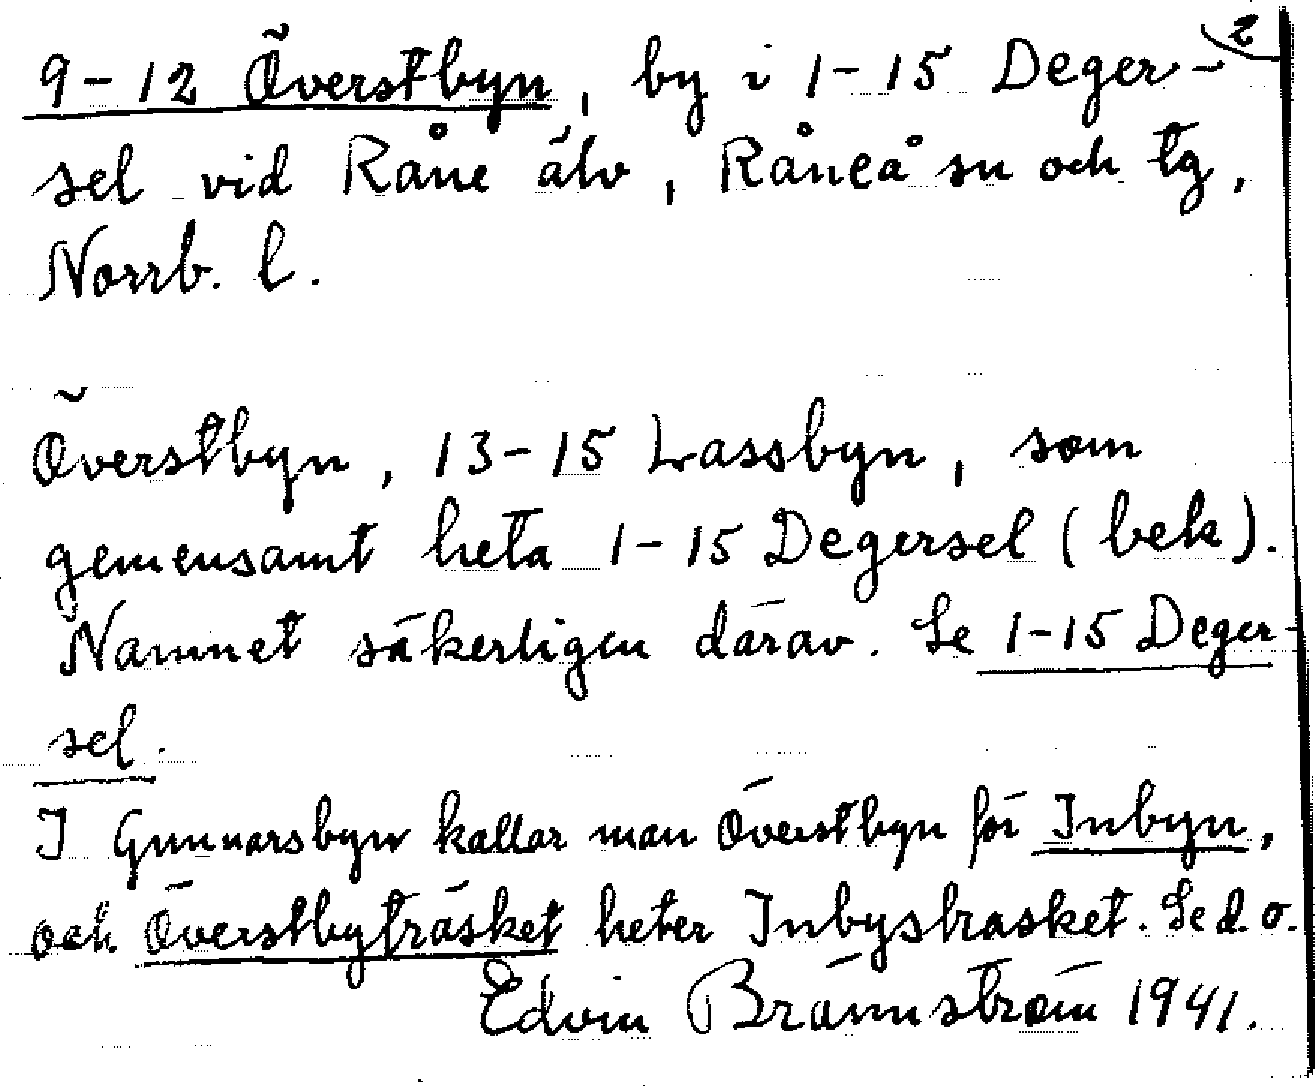 2
9-12 Överstbyn, by i 1-15 Deger-
sel vid Råne älv, Råneå sn och tg,
Norrb. l.
Överstbyn, 13-15 Lassbyn, som
gemensamt heta 1-15 Degersel (bek).
Namnet säkerligen därav. Se 1-15 Deger-
sel.
I Gunnarsbyn kallar man Överstbyn för Inbyn,
och Överstbyträsket heter Inbysträsket. Se d. o.
Edvin Brännström 1941.